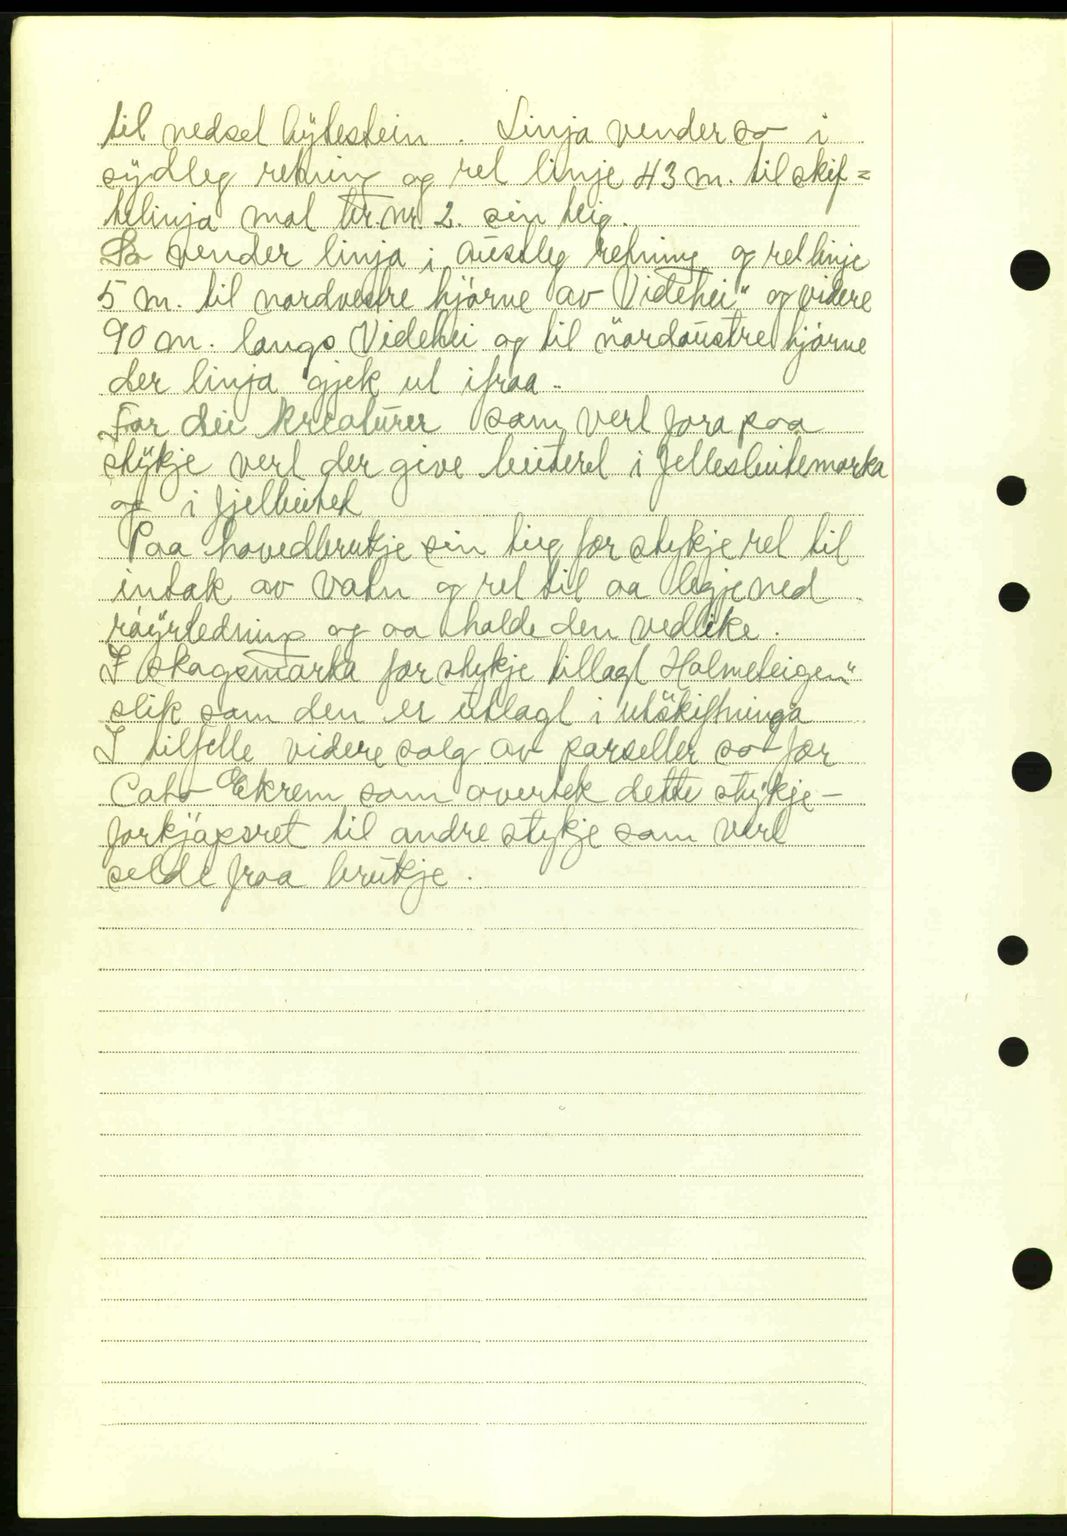 til nedset bytestein. Linja vender so i
sydleg retning og ret linje 43 m. til skif=
telinja mot br.nr. 2. sin teig.
So vender linja i austleg retning og ret linje
5 m. til nordvestre hjórne av Videhei" og videre
90 m. langs Videhei og til nordaustre hjórne
der linja gjek ut ifraa -
For dei kreaturer som vert fora paa
stykje vert der give beiteret i fellesbeitemarka
og i fjelbeitet
Paa hovedbrukje sin teig fær stykje ret til
intak av vatn og ret til aa legje ned
róyrledning og aa halde den vedlike.
I skogsmarka fær stykje tillagt Holmeteigen"
slik som den er utlagt i utskiftninga
I tilfelle videre salg av parseller so fær
Cato Ekrem som overtek dette stykje -
forkjópsret til andre stykje som vert
selde fraa brukje.